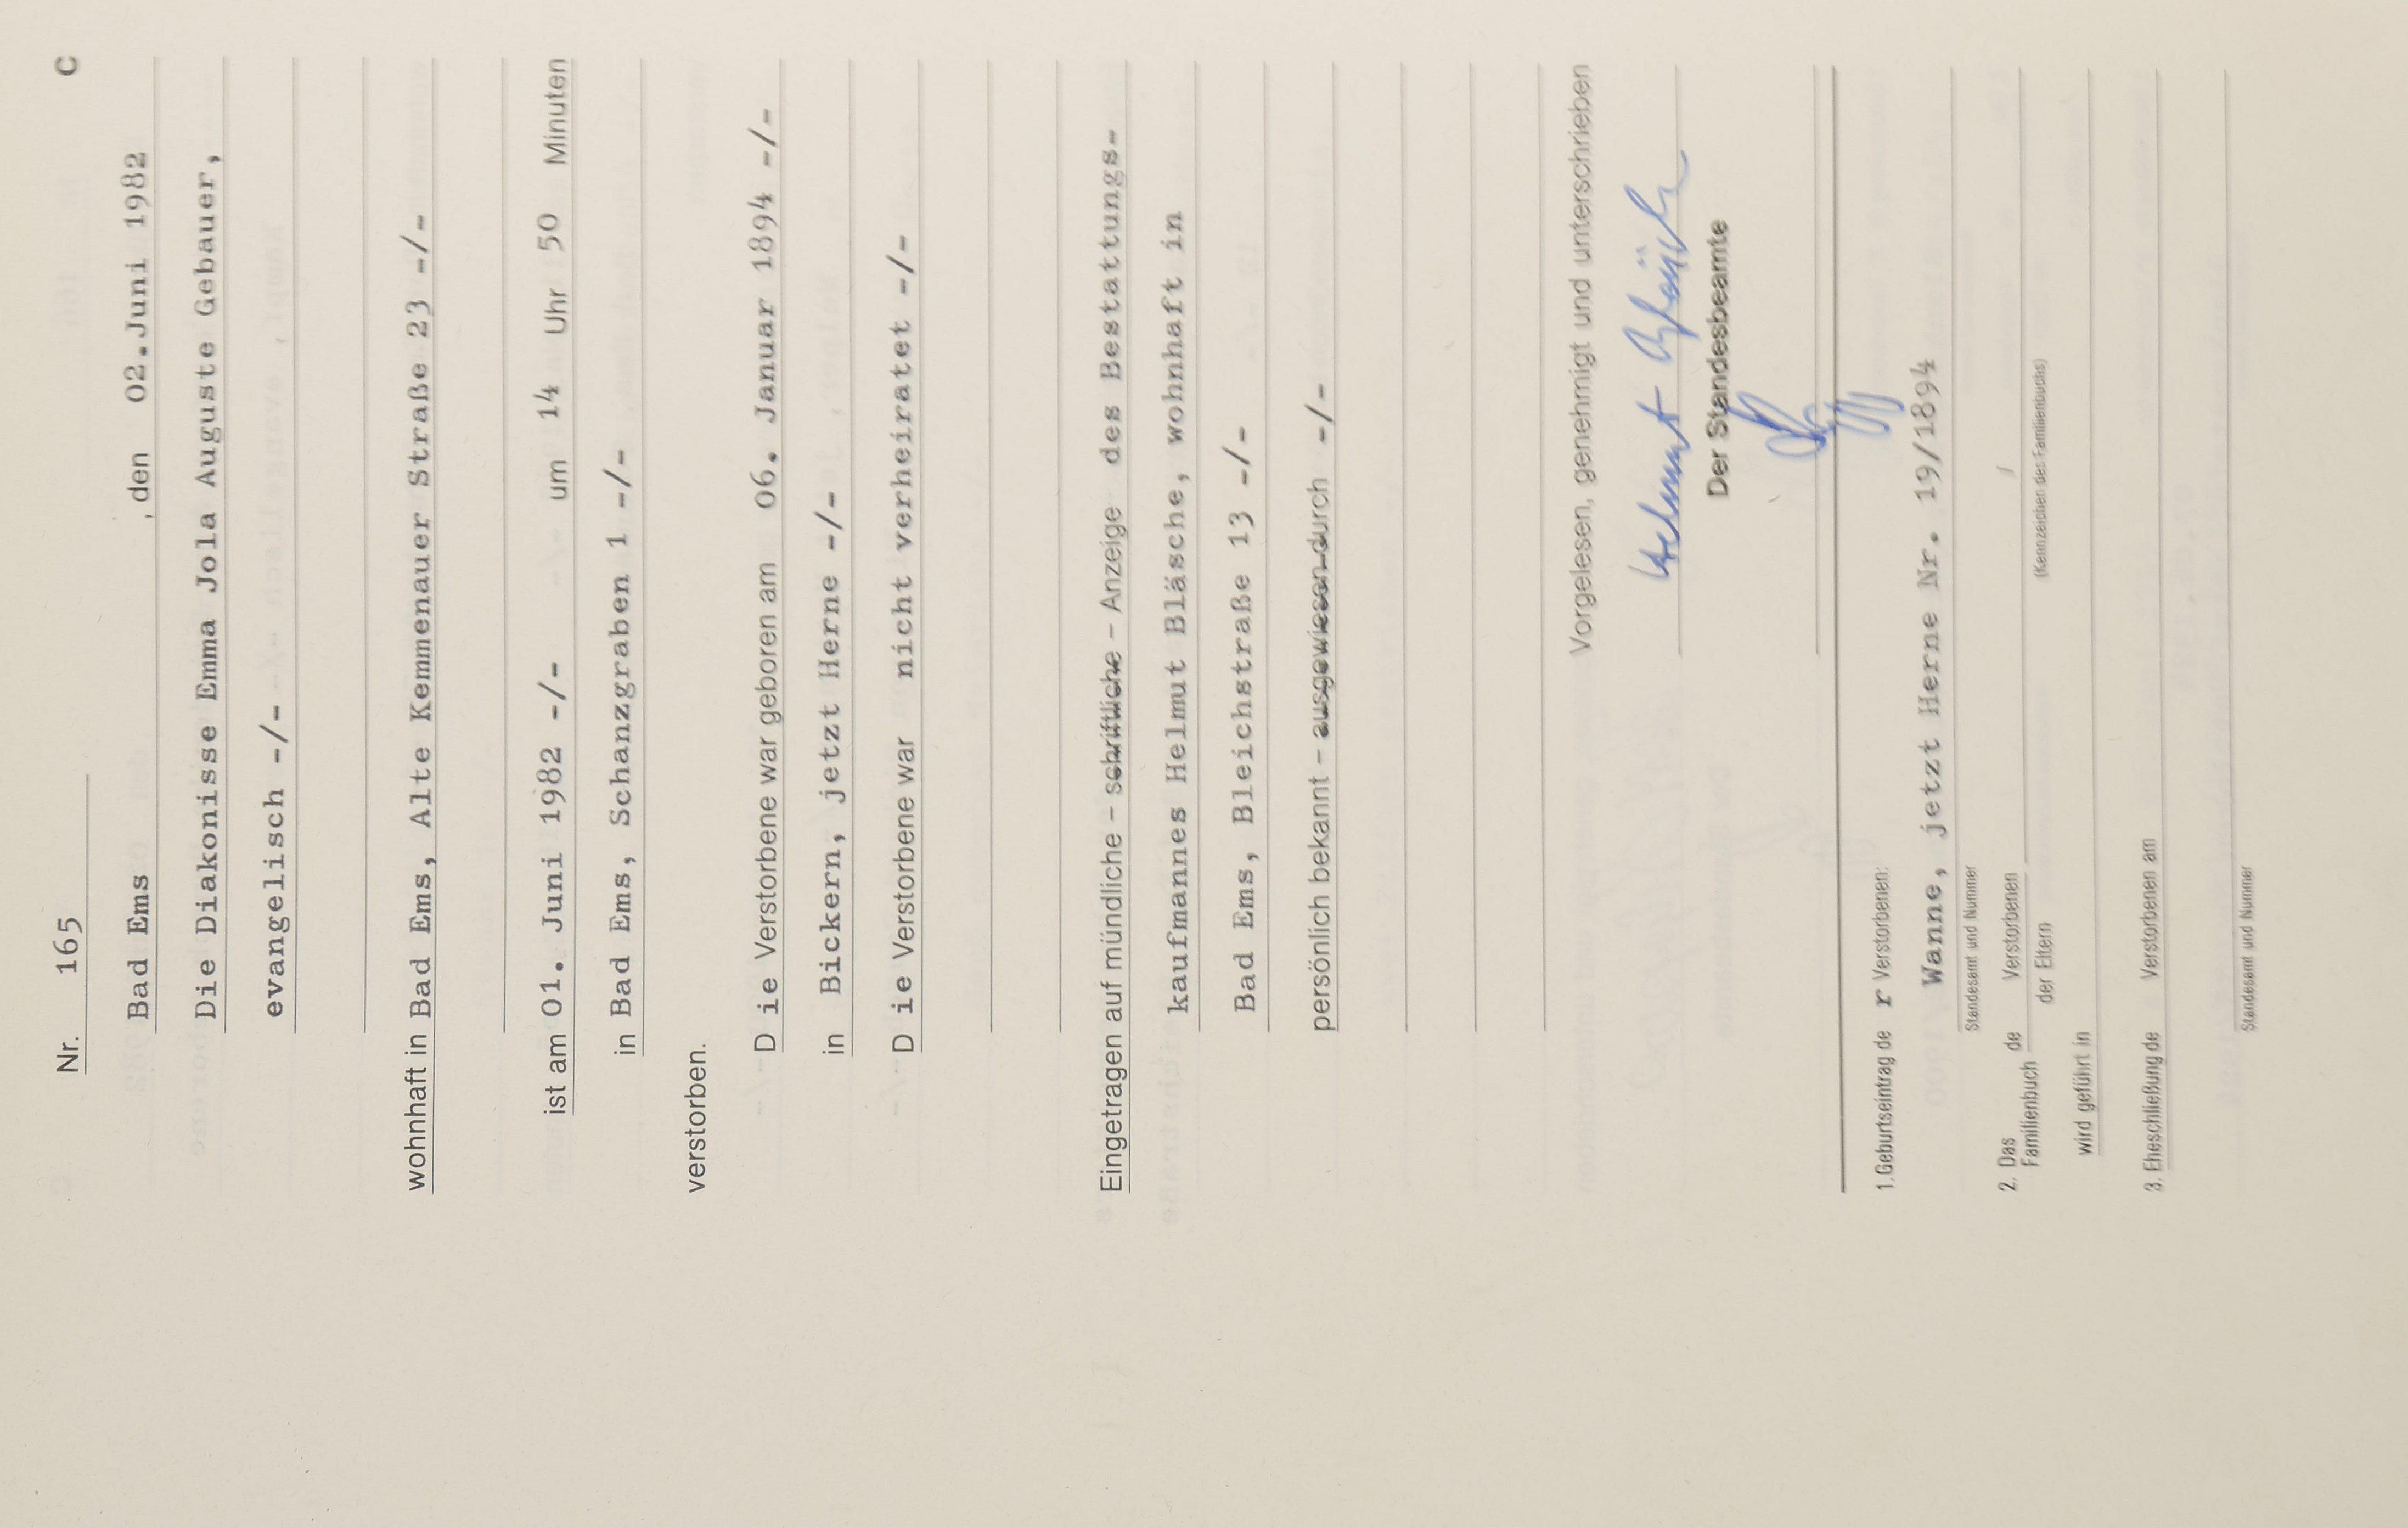 Nr. 165 C
Bad Ems , den 02.Juni 1982
Die Diakonisse Emma Jola Auguste Gebauer,
evangelisch -/-
wohnhaft in Bad Ems, Alte Kemmenauer Straße 23 -/-
ist am 01. Juni 1982 -/- um 14 Uhr 50 Minuten
in Bad Ems, Schanzgraben 1 -/-
verstorben.
D ie Verstorbene war geboren am 06. Januar 1894 -/-
in Bickern, jetzt Herne -/-
D ie Verstorbene war nicht verheiratet -/-
Eingetragen auf mündliche – schriftliche – Anzeige des Bestattungs-
kaufmannes Helmut Bläsche, wohnhaft in
Bad Ems, Bleichstraße 13 -/-
persönlich bekannt – ausgewiesen durch -/-
Vorgelesen, genehmigt und unterschrieben
Helmut Bläsche
Der Standesbeamte
1. Geburtseintrag de r Verstorbenen:
Wanne, jetzt Herne Nr. 19/1894
Standesamt und Nummer
2. Das Familienbuch de Verstorbenen
der Eltern
(Kennzeichen des Familienbuchs)
wird geführt in
3. Eheschließung de Verstorbenen am
Standesamt und Nummer